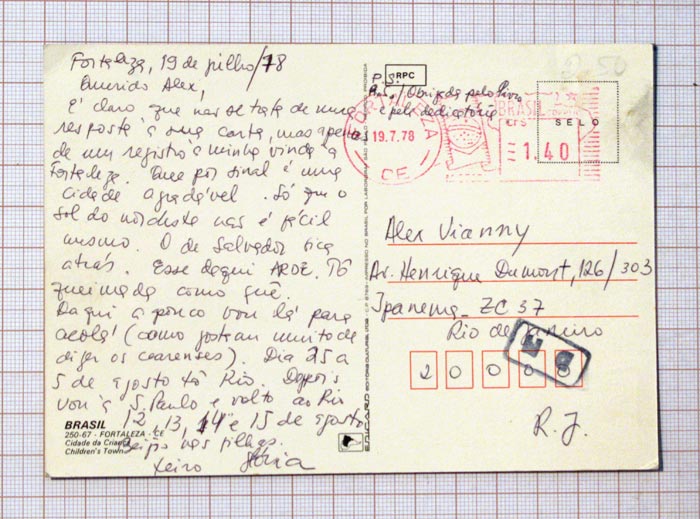 Fortaleza, 19 de julho/78
Querido Alex,
É claro que não se trata de uma
resposta à sua carta, mas apenas
de um registro à minha vinda a
Fortaleza. Que por sinal é uma
cidade agradável. Só que o
sol do nordeste não é fácil
mesmo. O de Salvador fica
atrás. Esse daqui ARDE. Tô
queimada como quê.
Daqui a pouco vou lá para
acolá (como gostam muito de
dizer os cearenses). Dia 25 a
5 de agosto tô Rio. Depois
vou à S. Paulo e volto ao Rio
12, 13, 14 e 15 de agosto
Beijão nas filhas.
BRASIL
250-67 - FORTALEZA - CE
Cidade da Criança
Children's Town
P.S.
RPC
Obrigada pelo livro
e pela dedicatória
FORTALEZA
19.7.78
CE
BRASIL
CTS
1.40
SELO
Alex Vianny
Av. Henrique Dumont, 126/303
Ipanema - ZC 37
Rio de Janeiro
2 0 0 0 0
R.J.